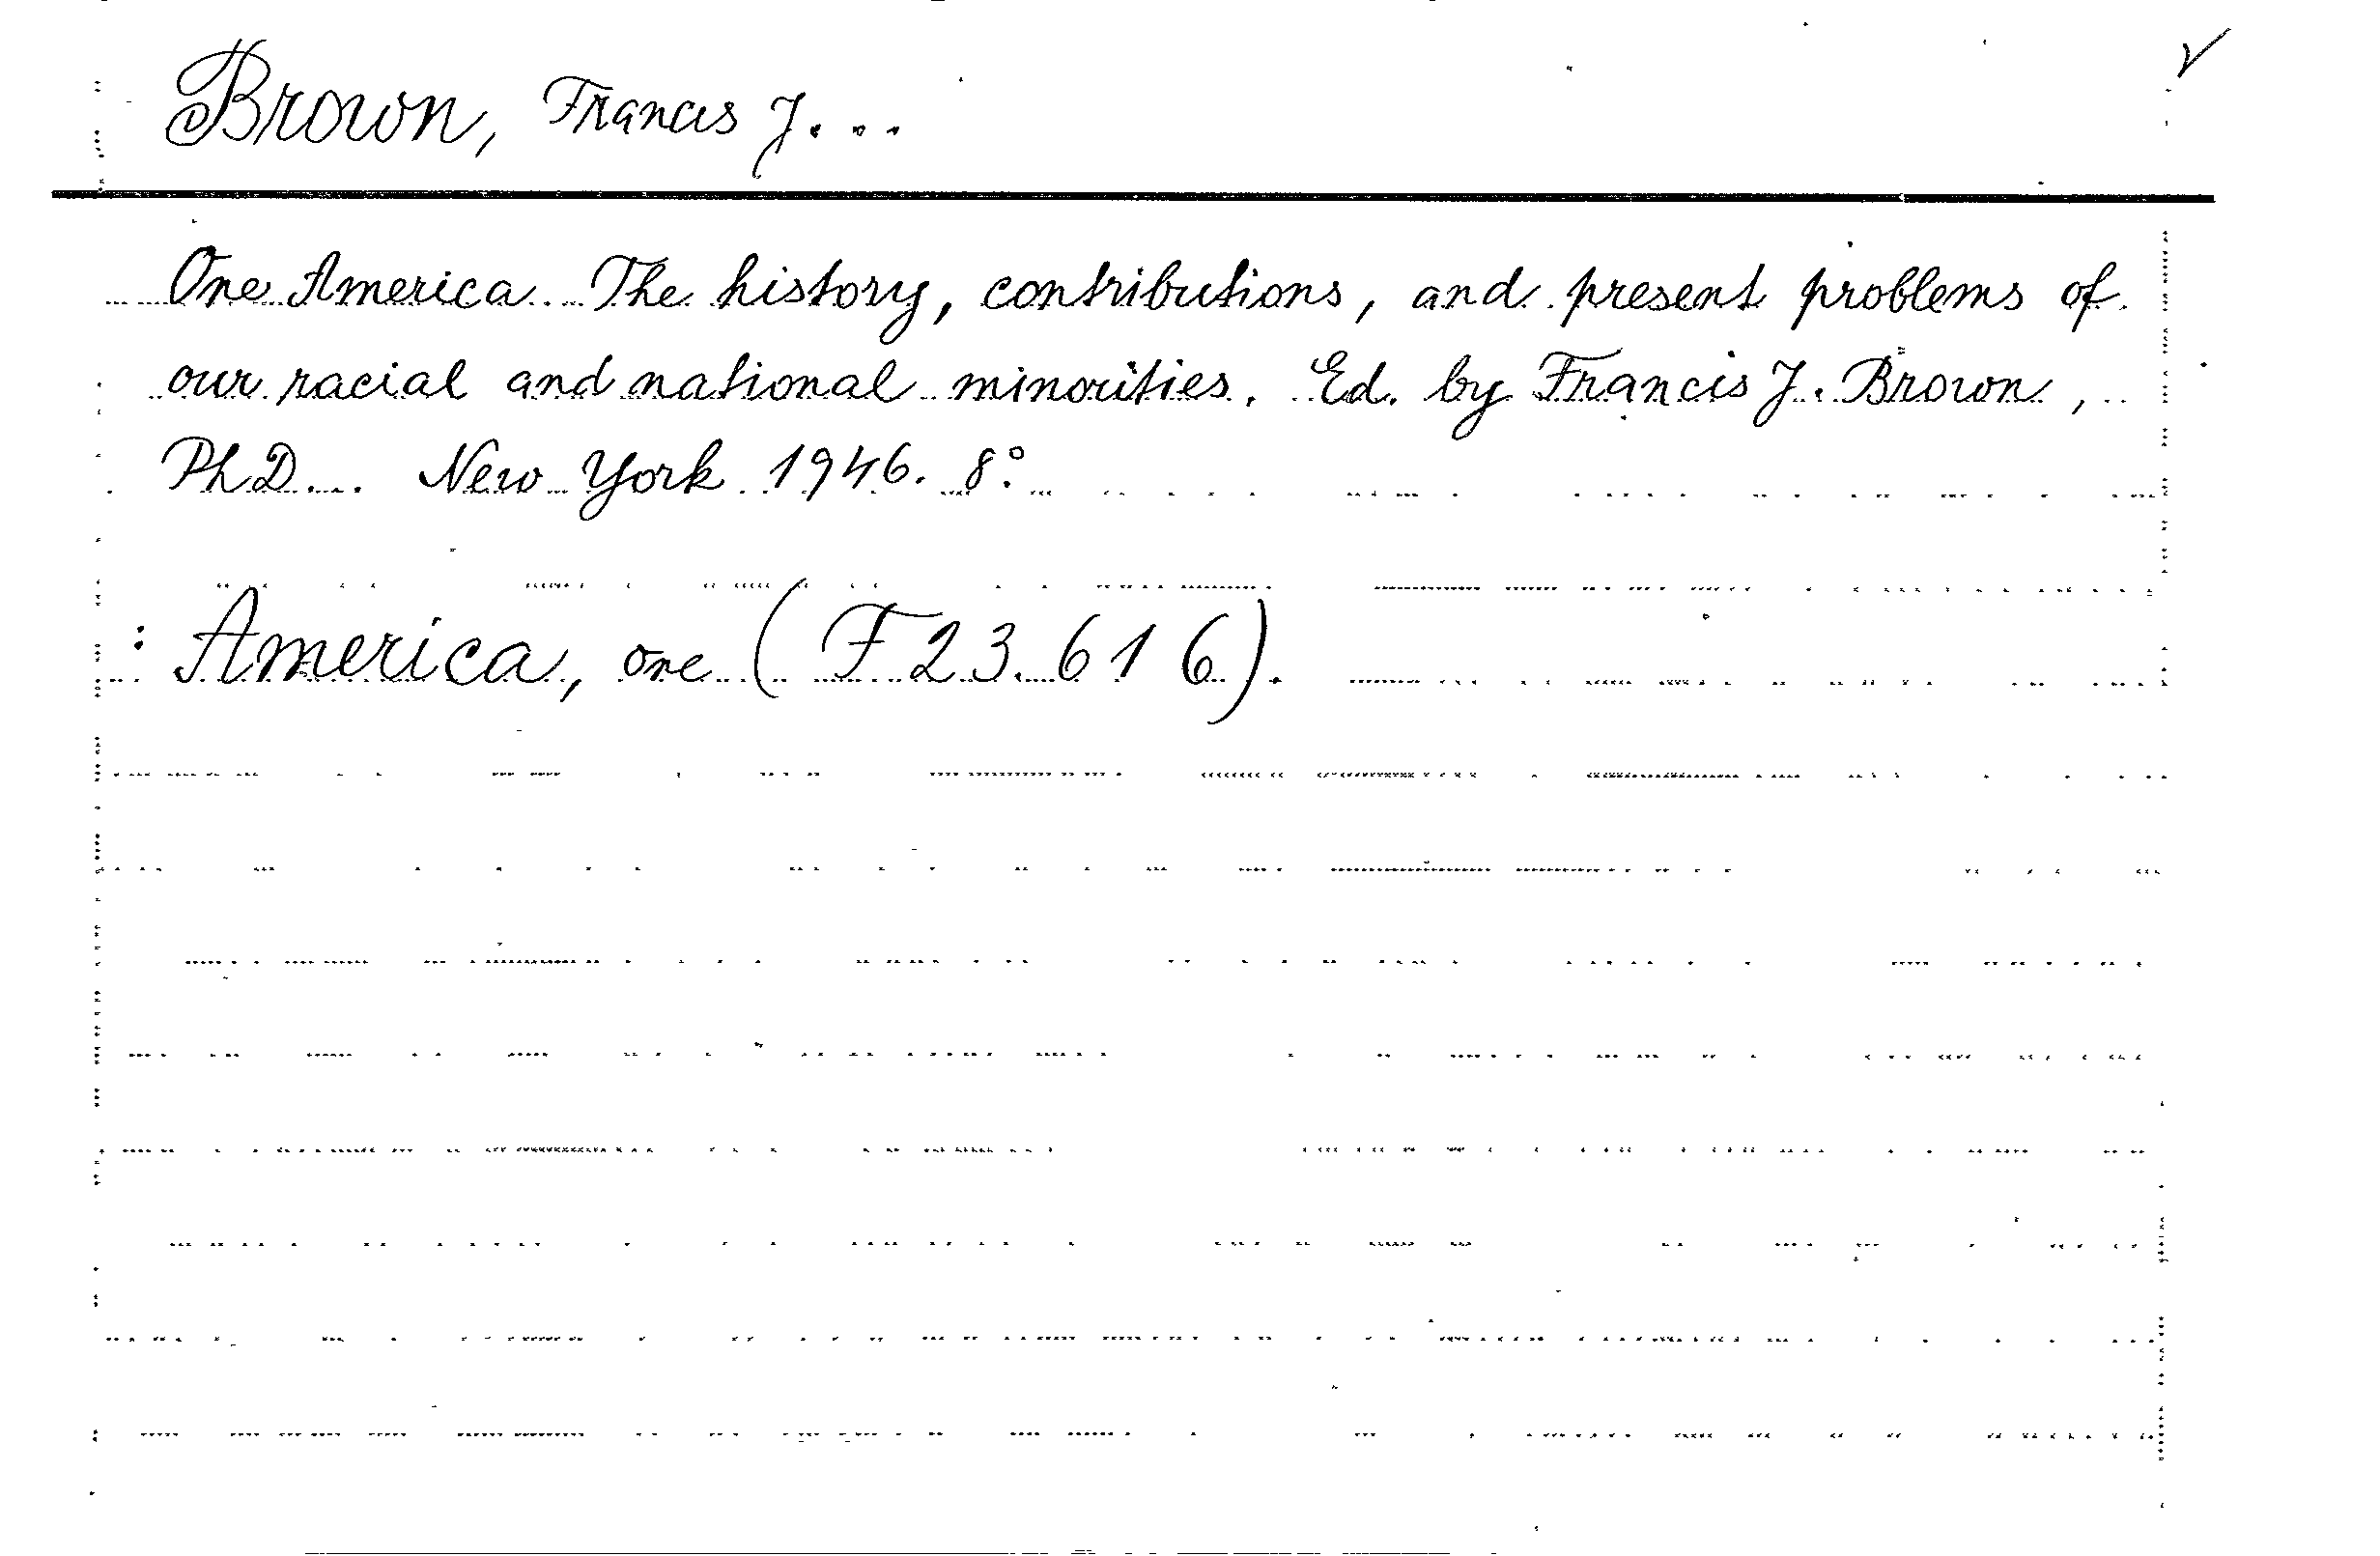 Brown, Francis J...
One America. The history, contributions, and present problems of
our racial and national minorities. Ed. by Francis J. Brown,
PhD... New York 1946. 8°.
: America, one (F 23.616).